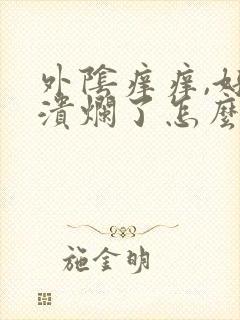 外陰痒痒,好
潰爛了怎麼
施金明